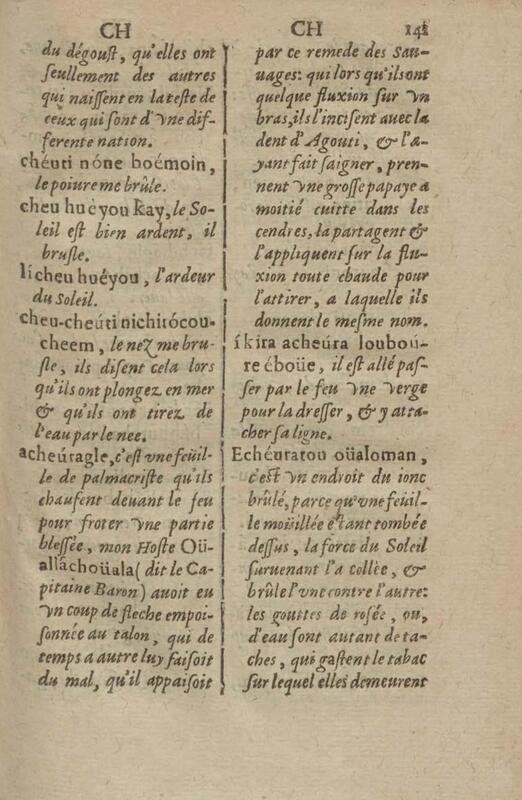 CH
du dégoust, qu'elles ont
seullement des autres
qui naissent en la teste de
ceux qui sont d'vne dif-
ferente nation.
chéuti nóne boémoin,
le poiure me brûle.
cheu huéyou kay, le So-
leil est bien ardent, il
brusle.
lícheu huéyou, l'ardeur
du Soleil.
cheu-cheúti nichitócou-
cheem, le nez me bru-
sle, ils disent cela lors
qu'ils ont plongez en mer
& qu'ils ont tirez de
l'eau par le nee.
acheúragle, c'est vne feüil-
le de palmacriste qu'ils
chaufent deuant le feu
pour froter vne partie
blessée, mon Hoste Oü-
allachoüala (dit le Ca-
pitaine Baron) auoit eu
vn coup de fleche empoi-
sonnée au talon, qui de
temps a autre luy faisoit
du mal, qu'il appaisoit
CH 141
par ce remede des Sau-
uages: qui lors qu'ils ont
quelque fluxion sur vn
bras, ils l'incisent auec la
dent d'Agouti, & l'a-
yant fait saigner, pren-
nent vne grosse papaye a
moitié cuitte dans les
cendres, la partagent &
l'appliquent sur la flu-
xion toute chaude pour
l'attirer, a laquelle ils
donnent le mesme nom.
íkira acheúra louboú-
re éboüe, il est allé pas-
ser par le feu vne verge
pour la dresser, & y atta-
cher sa ligne.
Echéuratou oüaloman,
c'est vn endroit du ionc
brûlé, parce qu'vne feüil-
le moüillée étant tombée
dessus, la force du Soleil
suruenant l'a collée, &
brûle l'vne contre l'autre:
les gouttes de rosée, ou,
d'eau sont autant de ta-
ches, qui gastent le tabac
sur lequel elles demeurent